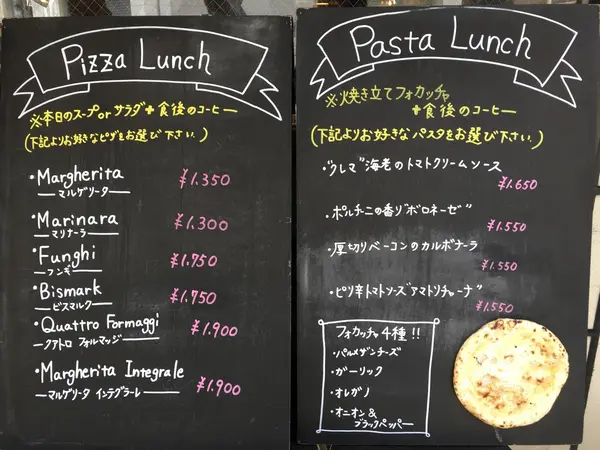 Pizza Lunch
※本日のスープorサラダ+食後のコーヒー
(下記よりお好きなピザをお選び下さい.)
・Margherita ¥1.350
ーマルゲリーターー
・Marinara ¥1.300
ーマリナーラー
・Funghi ¥1.750
ーフンギー
・Bismark ¥1.750
ービスマルクー
・Quattro Formaggi ¥1.900
ークアトロ フォルマッジー
・Margherita Integrale ¥1.900
ーマルゲリータ インテグラーレー
Pasta Lunch
※焼き立てフォカッチャ
+食後のコーヒー
(下記よりお好きなパスタをお選び下さい.)
・"クレマ"海老のトマトクリームソース
¥1.650
・ポルチーニの香り"ボロネーゼ"
¥1.550
・厚切りベーコンのカルボナーラ
¥1.550
・ピリ辛トマトソース"アマトリチャーナ"
¥1.550
フォカッチャ4種!!
・パルメザンチーズ
・ガーリック
・オレガノ
・オニオン&
ブラックペッパー